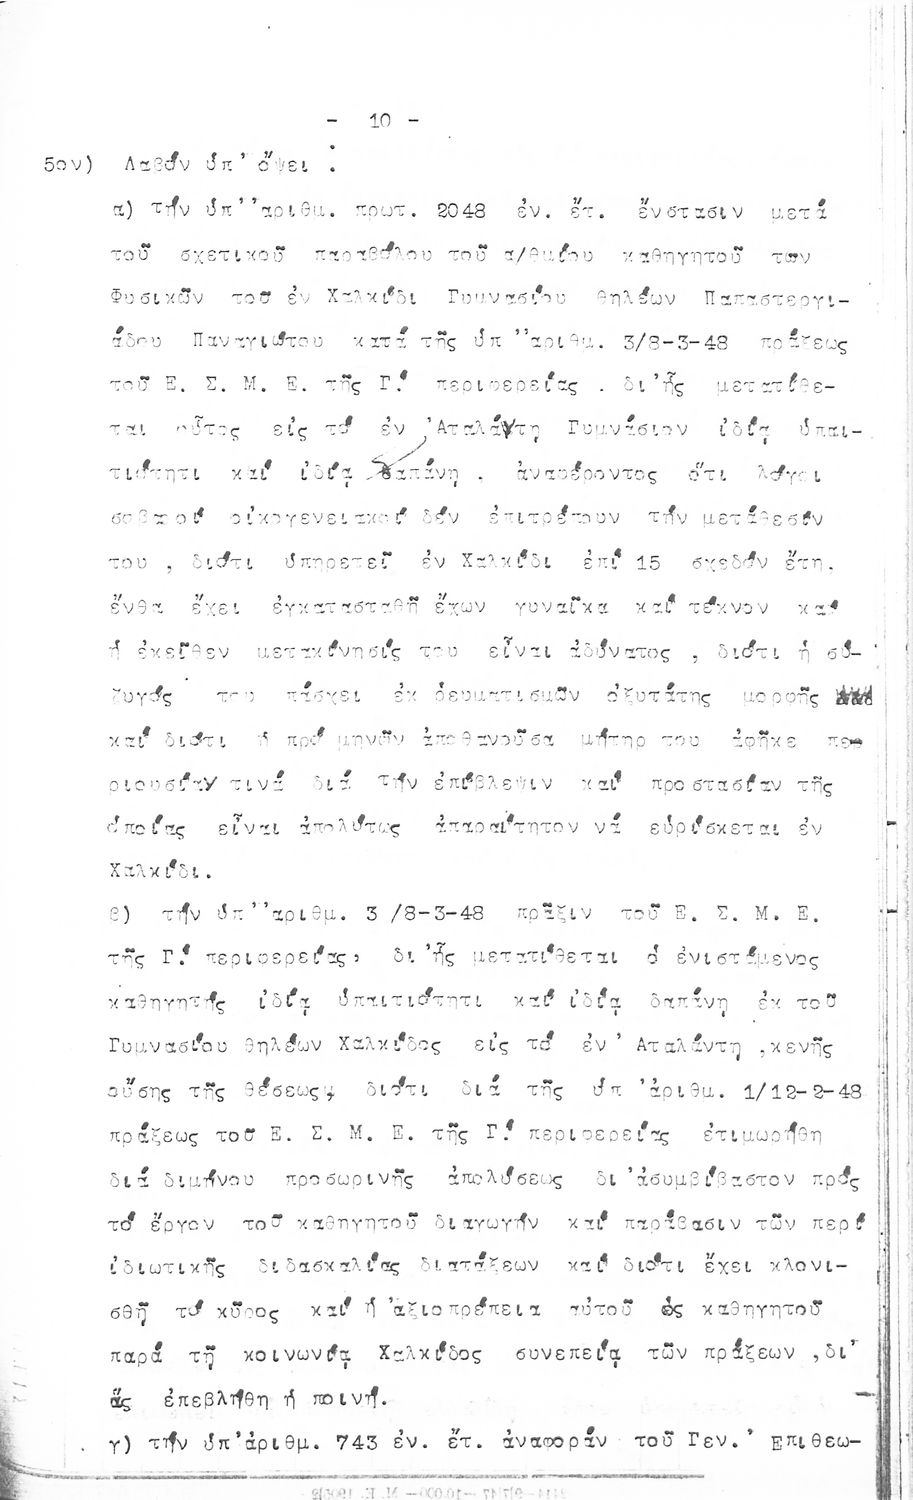 - 10 -
5ον) Λαβόν ὑπ' ὄψει :
α) τήν ὑπ''αριθμ. πρωτ. 2048 ἐν. ἔτ. ἔνστασιν μετά
τοῦ σχετικοῦ παραβόλου τοῦ α/θμίου καθηγητοῦ των
Φυσικῶν τοῦ ἐν Χαλκίδι Γυμνασίου θηλέων Παπαστεργι-
άδου Παναγιώτου κατά τῆς ὑπ ''αριθμ. 3/8-3-48 πράξεως
τοῦ Ε. Σ. Μ. Ε. τῆς Γ.' περιφερείας . δι'ἧς μετατίθε-
ται οὗτος εἰς τό ἐν 'Αταλάντη Γυμνάσιον ἰδίᾳ ὑπαι-
τιότητι καί ἰδίᾳ δαπάνῃ . ἀναφέροντος ὅτι λόγοι
σοβαροί οἰκογενειακοί δέν ἐπιτρέπουν τήν μετάθεσίν
του , διότι ὑπηρετεῖ ἐν Χαλκίδι ἐπί 15 σχεδόν ἔτη.
ἔνθα ἔχει ἐγκατασταθῆ ἔχων γυναῖκα καί τέκνον καί
ἡ ἐκεῖθεν μετακίνησίς του εἶναι ἀδύνατος , διότι ἡ σύ-
ζυγός του πάσχει ἐκ ῥευματισμῶν ὀξυτάτης μορφῆς
καί διότι ἡ πρό μηνῶν ἀποθανοῦσα μήτηρ του ἀφῆκε πε-
ριουσίαν τινά διά τήν ἐπίβλεψιν καί προστασίαν τῆς
ὁποίας εἶναι ἀπολύτως ἀπαραίτητον νά εὑρίσκεται ἐν
Χαλκίδι.
β) τήν ὑπ''αριθμ. 3 /8-3-48 πρᾶξιν τοῦ Ε. Σ. Μ. Ε.
τῆς Γ.' περιφερείας, δι'ἧς μετατίθεται ὁ ἐνιστάμενος
καθηγητής ἰδίᾳ ὑπαιτιότητι καί ἰδίᾳ δαπάνῃ ἐκ τοῦ
Γυμνασίου θηλέων Χαλκίδος εἰς τό ἐν' Αταλάντη ,κενῆς
οὔσης τῆς θέσεως, διότι διά τῆς ὑπ 'ἀριθμ. 1/12-2-48
πράξεως τοῦ Ε. Σ. Μ. Ε. τῆς Γ.' περιφερείας ἐτιμωρήθη
διά διμήνου προσωρινῆς ἀπολύσεως δι'ἀσυμβίβαστον πρός
τό ἔργον τοῦ καθηγητοῦ διαγωγήν καί παράβασιν τῶν περί
ἰδιωτικῆς διδασκαλίας διατάξεων καί διότι ἔχει κλονι-
σθῆ τό κῦρος καί ἡ 'ἀξιοπρέπεια αὐτοῦ ὡς καθηγητοῦ
παρά τῇ κοινωνίᾳ Χαλκίδος συνεπείᾳ τῶν πράξεων ,δι'
ἅς ἐπεβλήθη ἡ ποινή.
γ) τήν ὑπ'ἀριθμ. 743 ἐν. ἔτ. ἀναφοράν τοῦ Γεν.' Επιθεω-